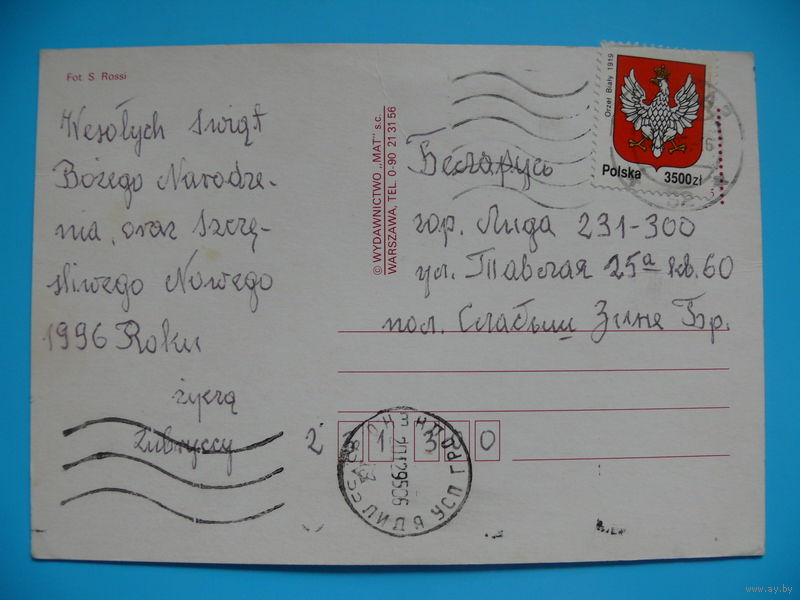 Fot. S. Rossi
Wesołych Świąt
Bożego Narodze-
nia, oraz Szczę-
śliwego Nowego
1996 Roku
życzą
Zubryccy
© WYDAWNICTWO „MAT" s.c.
WARSZAWA, TEL. 0-90 21 31 56
Orzeł Biały 1919
Polska 3500zł
Беларусь
гор. Лида 231-300
ул. Тавлая 25а кв. 60
пол. Слабыш Зине Бр.
2 3 1 3 0 0
ЛИДА
УСП
www.ay.by